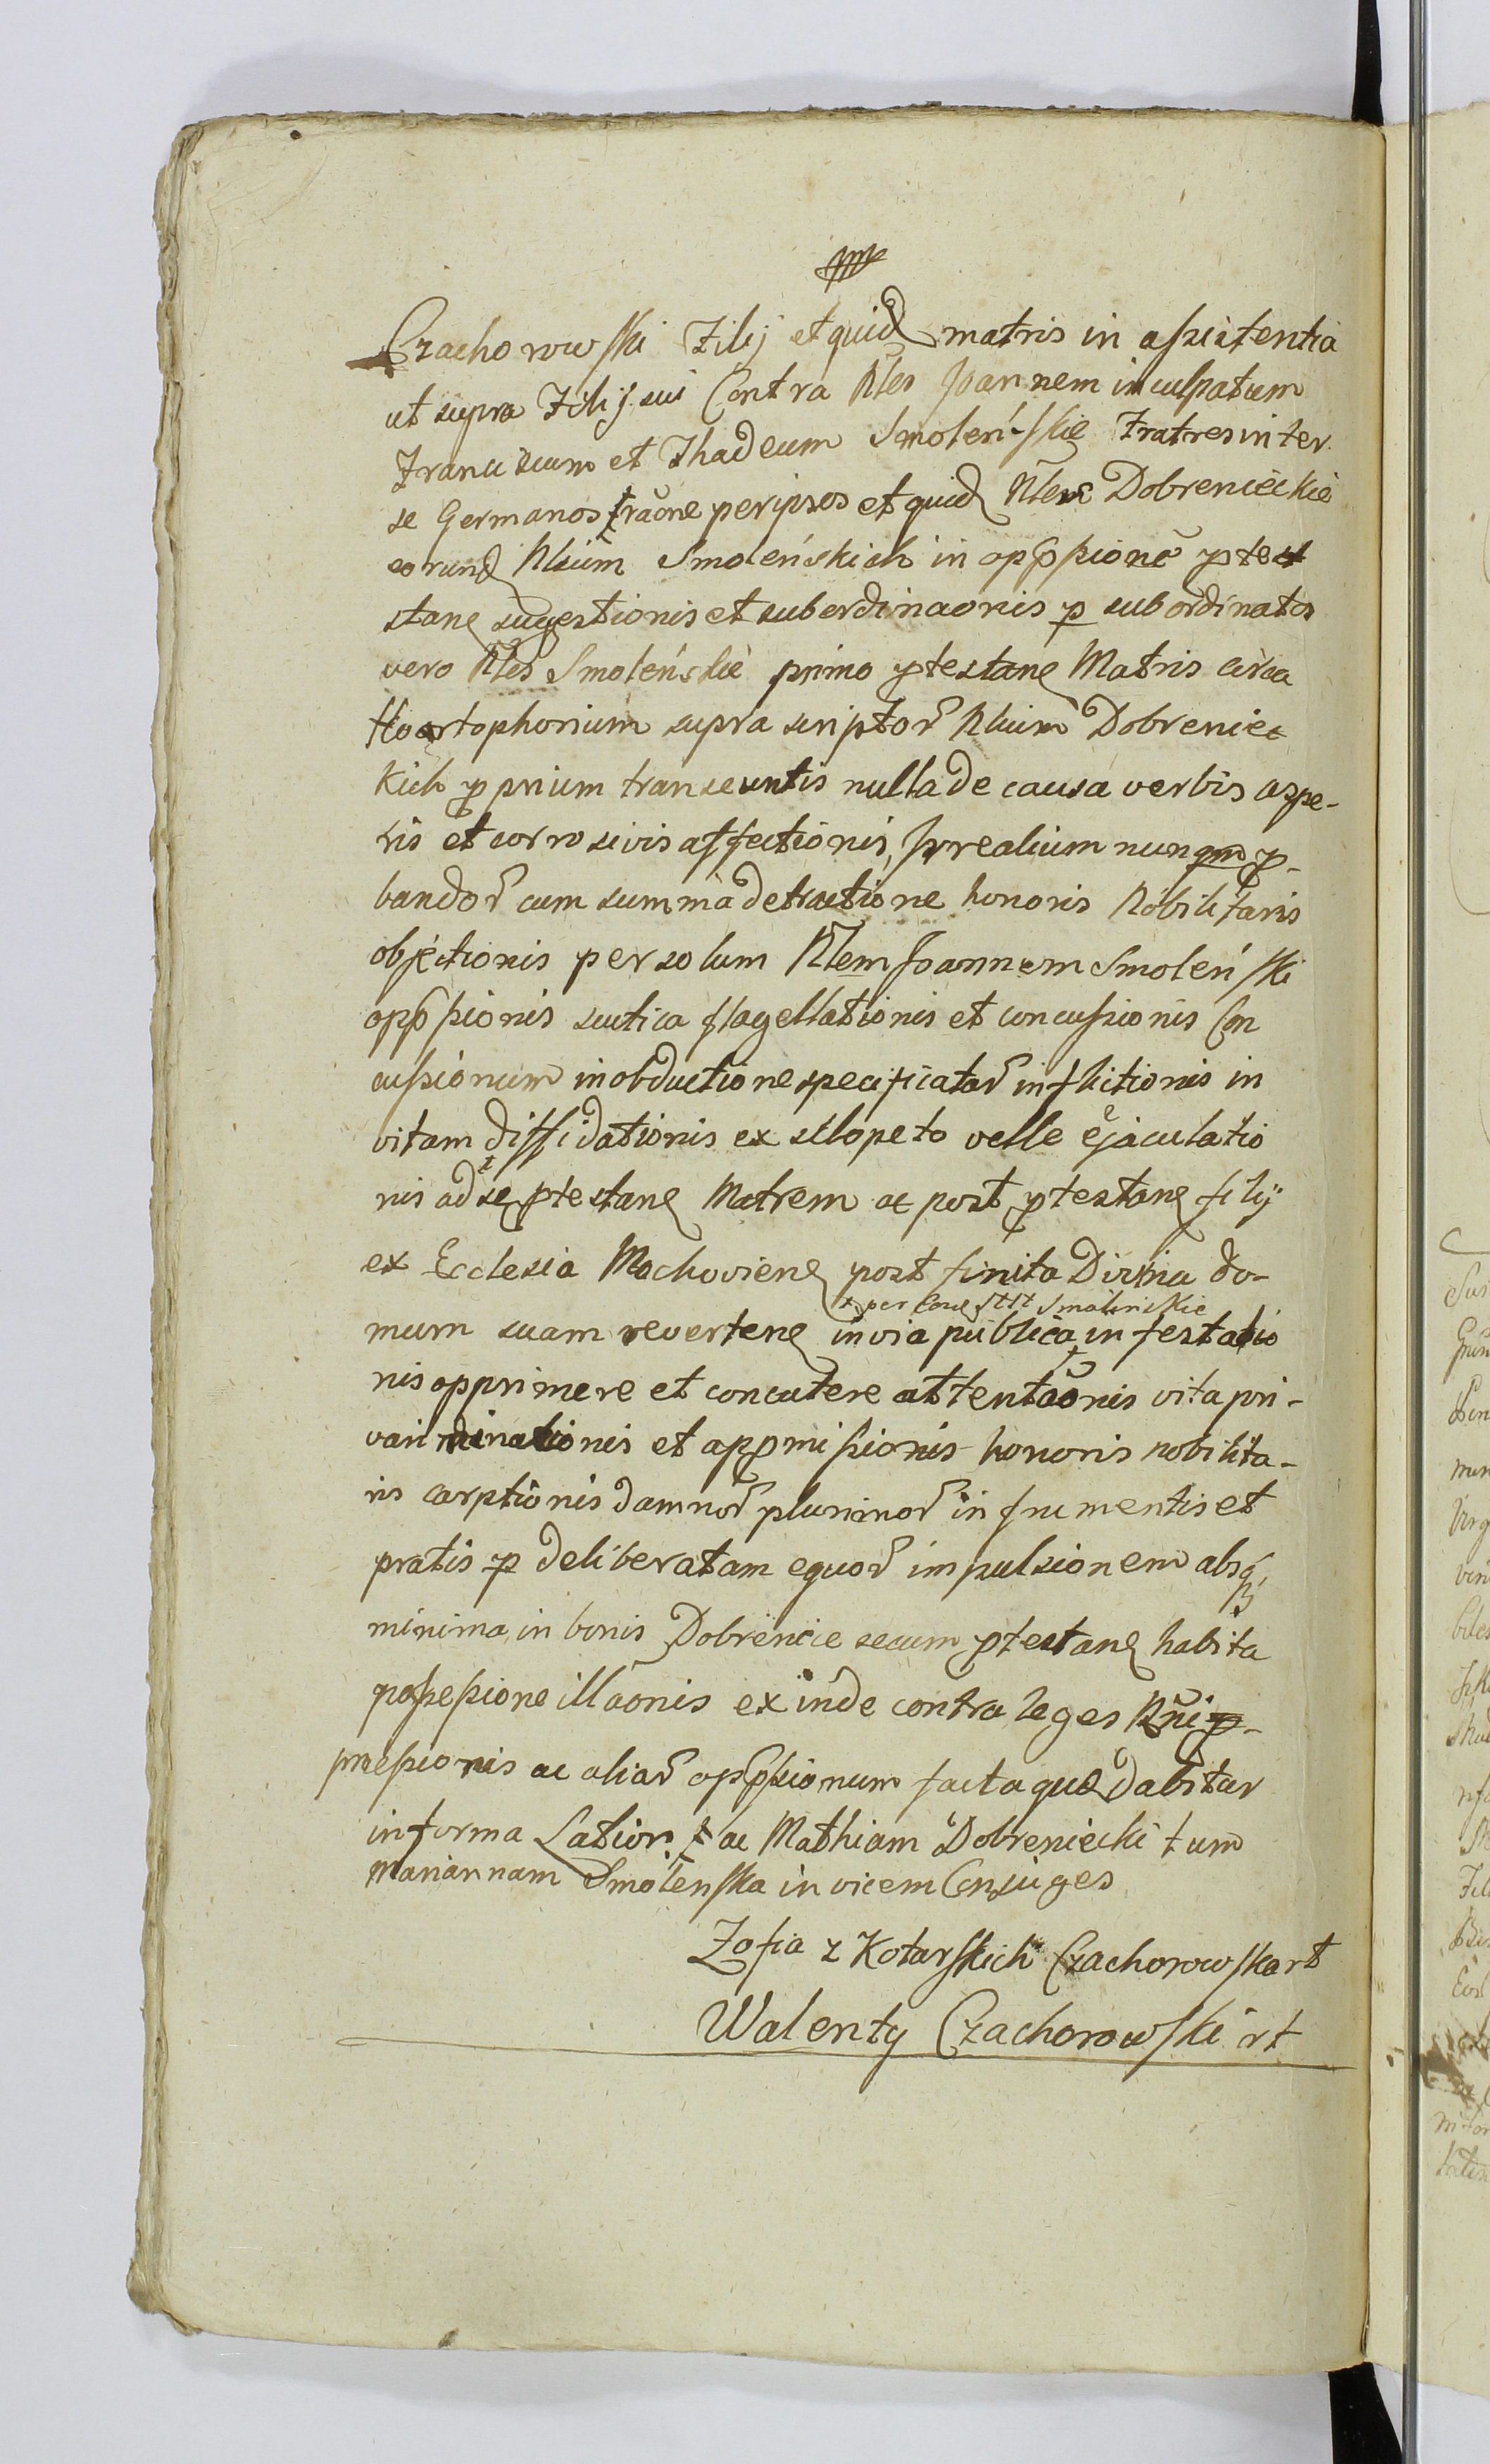 Czachorowski Filij et quid matris in assistentia
ut supra Filij sui Contra Nles Joannem inculpatum
Franciscum et Thadeum Smoleńskie Fratres inter
se Germanos raone per ipsos et quid Nles Dobrenieckie
eorund Nlium Smoleńskich in opp̄ssione ptest
stane sugestionis et subordinaonis p subordinatos
vero Nles Smoleńskie primo ptestane Matris circa
Hortophorium supra scriptor Nlium Dobreniec
kich p prium transeuntis nulla de causa verbis aspe-
ris et corrosivis affectionis, irrealium nunqm p-
bandor cum summa detractione honoris Nobilitaris
objectionis per solum Nlem Joannem Smoleński
opp̄ssionis scutica flagellationis et concussionis Con
cussionum in obductione specificatar inflictionis in
vitam diffidationis ex sclopeto velle ejaculatio
nis ad se ptestane Matrem ac post ptestane filij
ex Ecclesia Mochoviene post finita Divina do-
mum suam revertene in via publica in festatio
x per Smolinskie
nis opprimere et concutere attentaonis vita pri-
vari minationis et appromissionis honoris nobilita-
ris carptionis damnor plurimor in frumentis et
pratis p deliberatam equor impulsionem absq
minima in bonis Dobrencie secum ptestane habita
possessione illaonis exinde contra leges Rni
pressionis ac aliar opp̄ssionum facta que dabitur
in forma Latiori ac Mathiam Dobreniecki tum
Mariannam Smolenska invicem Conjuges
Zofia z Kotarskich Czachorowska rt
Walenty Czachorowski rt